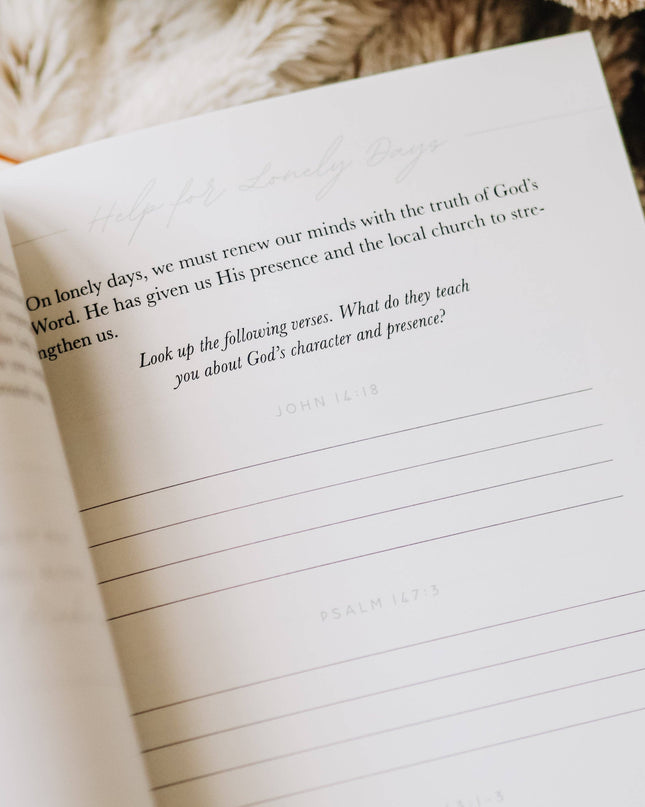 Help for Lonely Days
On lonely days, we must renew our minds with the truth of God's
Word. He has given us His presence and the local church to stre-
ngthen us.
Look up the following verses. What do they teach
you about God's character and presence?
JOHN 14:18
PSALM 147:3